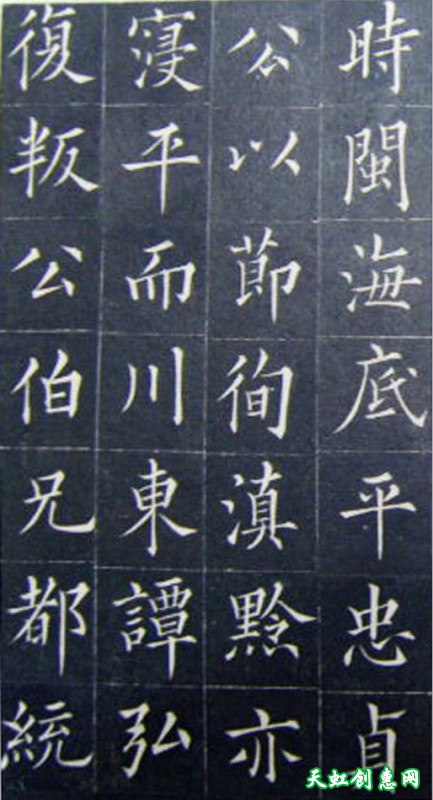 時閩海底平忠貞
公以莭徇滇黔亦
寖平而川東譚弘
復叛公伯兄都統
天虹创惠网